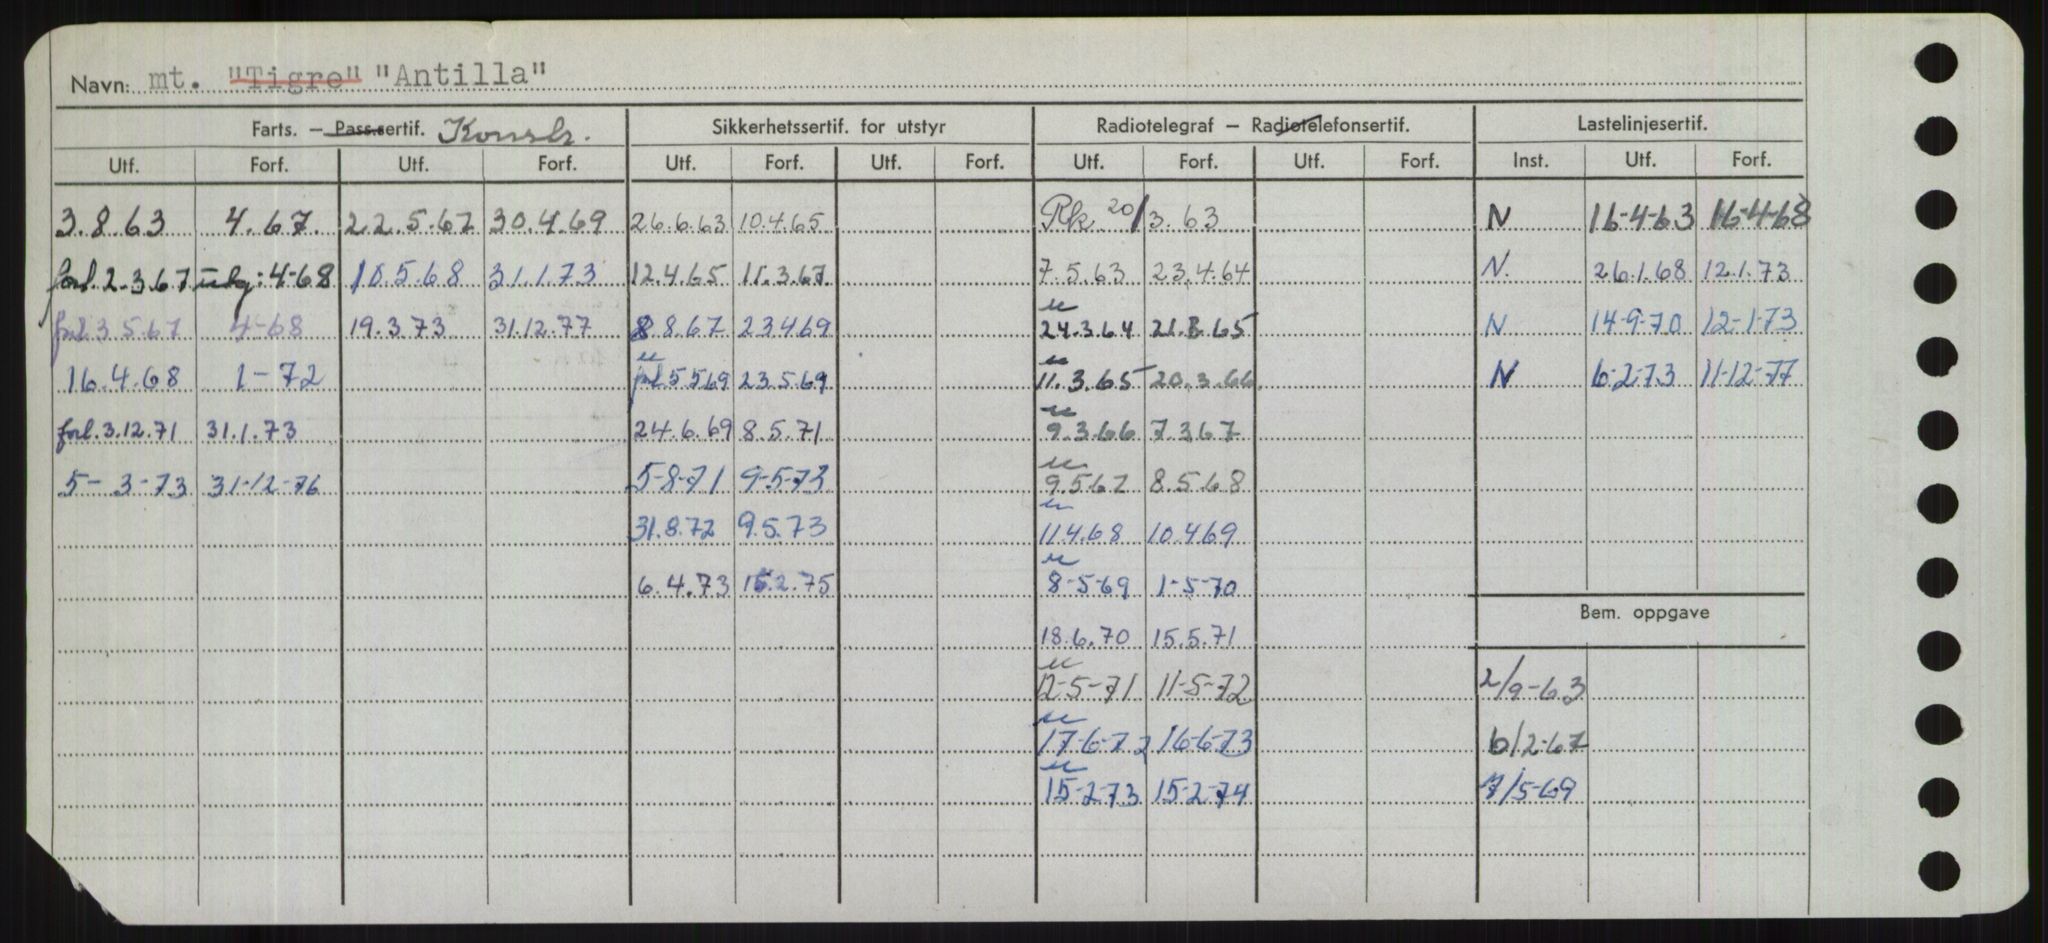 Navn: mt. "Tigre" "Antilla"
Farts. – Pass.sertif. Konstr. Sikkerhetssertif. for utstyr Radiotelegraf – Radiotelefonsertif. Lastelinjesertif.
Utf. Forf. Utf. Forf. Utf. Forf. Utf. Forf. Utf. Forf. Utf. Forf. Inst. Utf. Forf.
3.8.63 4.67. 22.5.67 30.4.69 26.6.63 10.4.65 Rk 20/3.63 N 16-4-63 16-4-68
forl. 2.3.67 utg: 4-68 10.5.68 31.1.73 12.4.65 11.3.67. 7.5.63 23.4.64 N. 26.1.68 12.1.73
forl 3.5.67 4-68 19.3.73 31.12.77 8.8.67 23.4.69 24.3.64 21.3.65 N 14-9-70 12-1-73
16.4.68 1-72 forl 5.5.69 23.5.69 11.3.65 20.3.66. N 6-2-73 11-12-77
forl. 3.12.71 31.1.73 24.6.69 8.5.71 9.3.66 7.3.67
5-3-73 31-12-76 5-8-71 9-5-73 9.5.67 8.5.68
31.8.72 9.5.73 11.4.68 10.4.69
6.4.73 15.2.75 8-5-69 1-5-70
Bem. oppgave
18.6.70 15.5.71
12-5-71 11-5-72 2/9-63
17-6-72 16-6-73 6/2-67
15-2-73 15-2-74 7/5-69